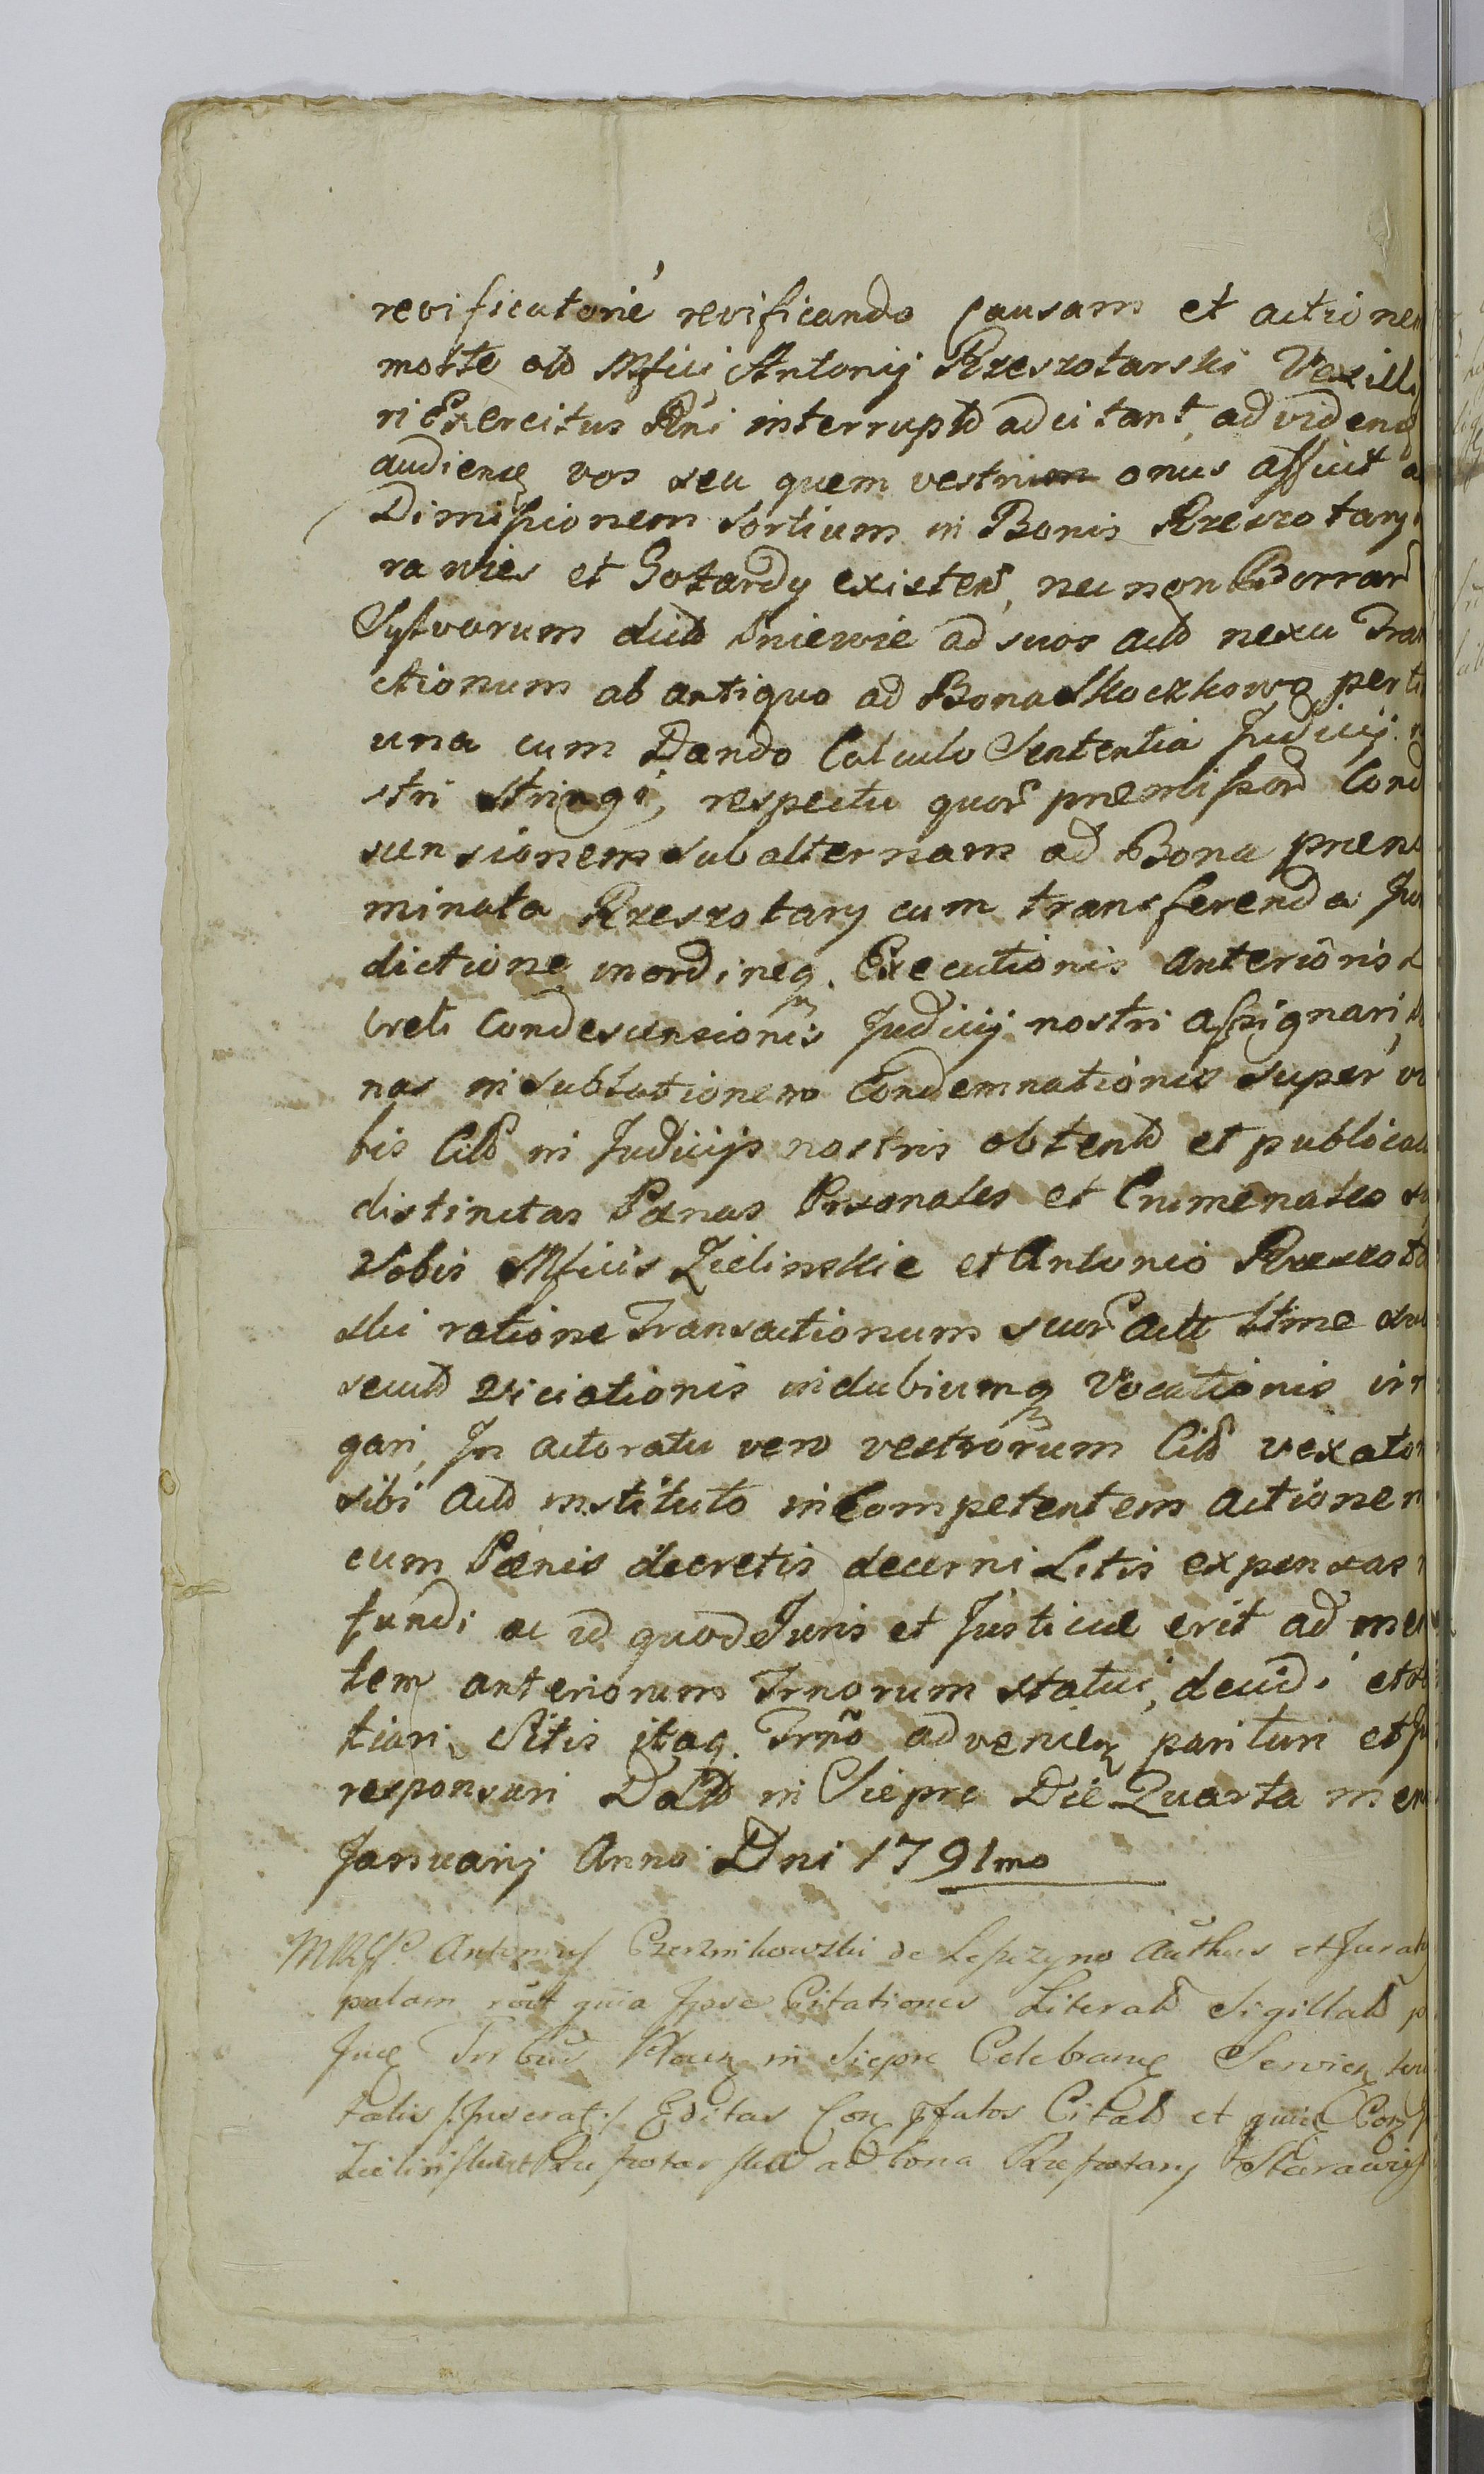 revificatorié revificando Causam et actionem
morte old Mfici Antonij Rzeszotarski Vexilli
ri Exercitus Rni interruptd adcitant, ad vidend
audiend vos seu quem vestrum onus afficit a
Dimissionem Sortium in Bonis Rzeszotary
rawies et Gotardy existen, nec non Borrar
Sylvarum dictd Gniewie ad suos actd nexu Tran
ctionum ab antiquo ad Bona Skoczkowo perti
una cum Dando Calculo Sententia Judicij n
stri stringi, respectu quor premissor Cond
scensionem subalternam ad Bona preno
minata Rzeszotary cum transferenda Ju
dictione in ordineq. Executionis anterioris d
creti Condescensionis Judicij nostri assignari,
nas in sublationem Condemnationis super vo
bis Citd in Judicijs nostris obtentd et publicat
distinctas Pænas Personales et Criminales
Vobis Mficis Zielinskie et Antonio Rzeszot
ski ratione Transactionum suor actt
secutd viciationis in dubiumq Vocationis irr
gari, In actoratu vero vestrorum Citd vexator
sibi actd instituto incompetentem actionem
cum Pænis decretis decerni Litis expensas
fundi ac id quod Juris et Justiciæ erit ad men
tem anteriorum Trnorum statui, decidi et
tiari. Sitis itaq. Trño advenien parituri et
responsuri Datd in Sieprc Die Quarta men
Januarij Anno Dni 1791mo
Antonius de Authus et Jurat
palam quia Ipse Citationes Literatd Sigillatd p
Jud Tribus Plocen in Sieprc Celebrand Servien
talis Editas Con Citatd et quid Cor
Zielinski et ad bona Rzeszotary Starawieś